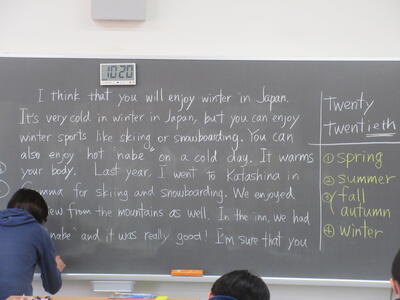 10:20
I think that you will enjoy winter in Japan.
It's very cold in winter in Japan, but you can enjoy
winter sports like skiing or snowboarding. You can
also enjoy hot "nabe" on a cold day. It warms
your body. Last year, I went to Katashina in
for skiing and snowboarding. We enjoyed
from the mountains as well. In the inn, we had
nabe" and it was really good! I'm sure that you
Twenty
Twentieth
① spring
② summer
③ fall
autumn
④ winter